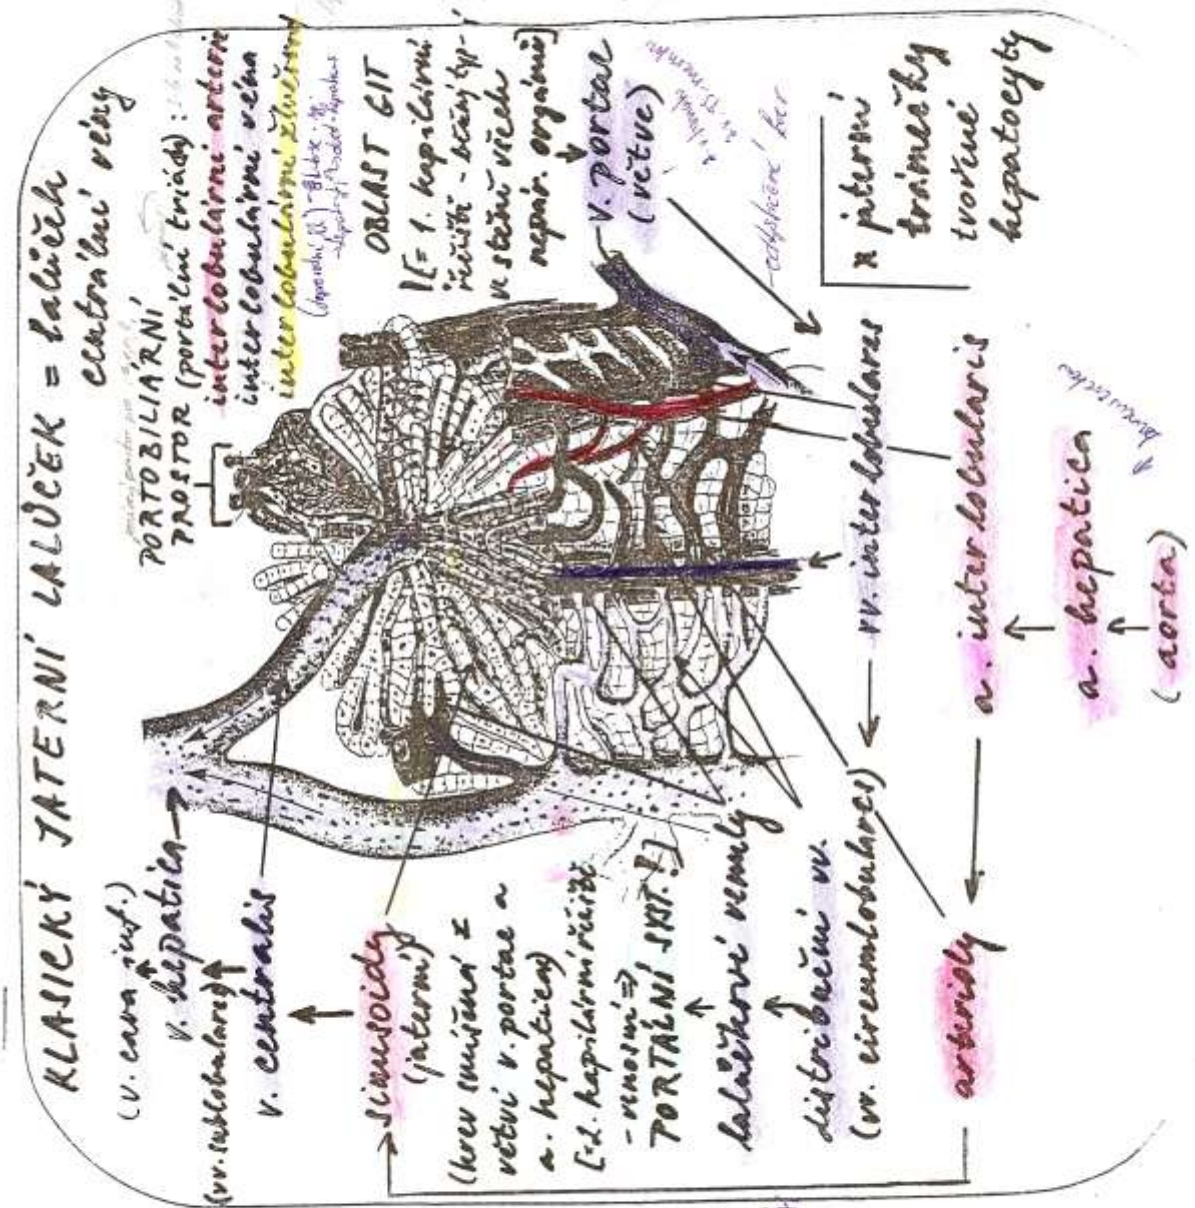 KLASICKÝ JATERNÍ LALŮČEK = lalůček
centrální vény
(v. cava inf.)
v. hepatica
(vv. sublobulares)
v. centralis
sinusoidy
(jaterní)
(krev smíšená z
větví v. portae a
a. hepatica)
[=2. kapilární řečiště
- venosní =>
PORTÁLNÍ SYST.!]
lalůčkové venuly
distribuční vv.
(vv. circumlobulares)
arterioly
PORTOBILIÁRNÍ
PROSTOR (portální triády) :
interlobulární arterie
interlobulární véna
interlobulární žlučovod
OBLAST GIT
[= 1. kapilární
řečiště - běžný typ -
ve stěnách všech
nepár. orgánů]
v. portae
(větve)
vv. interlobulares
a. interlobularis
a. hepatica
(aorta)
x jaterní
trámečky
tvořené
hepatocyty